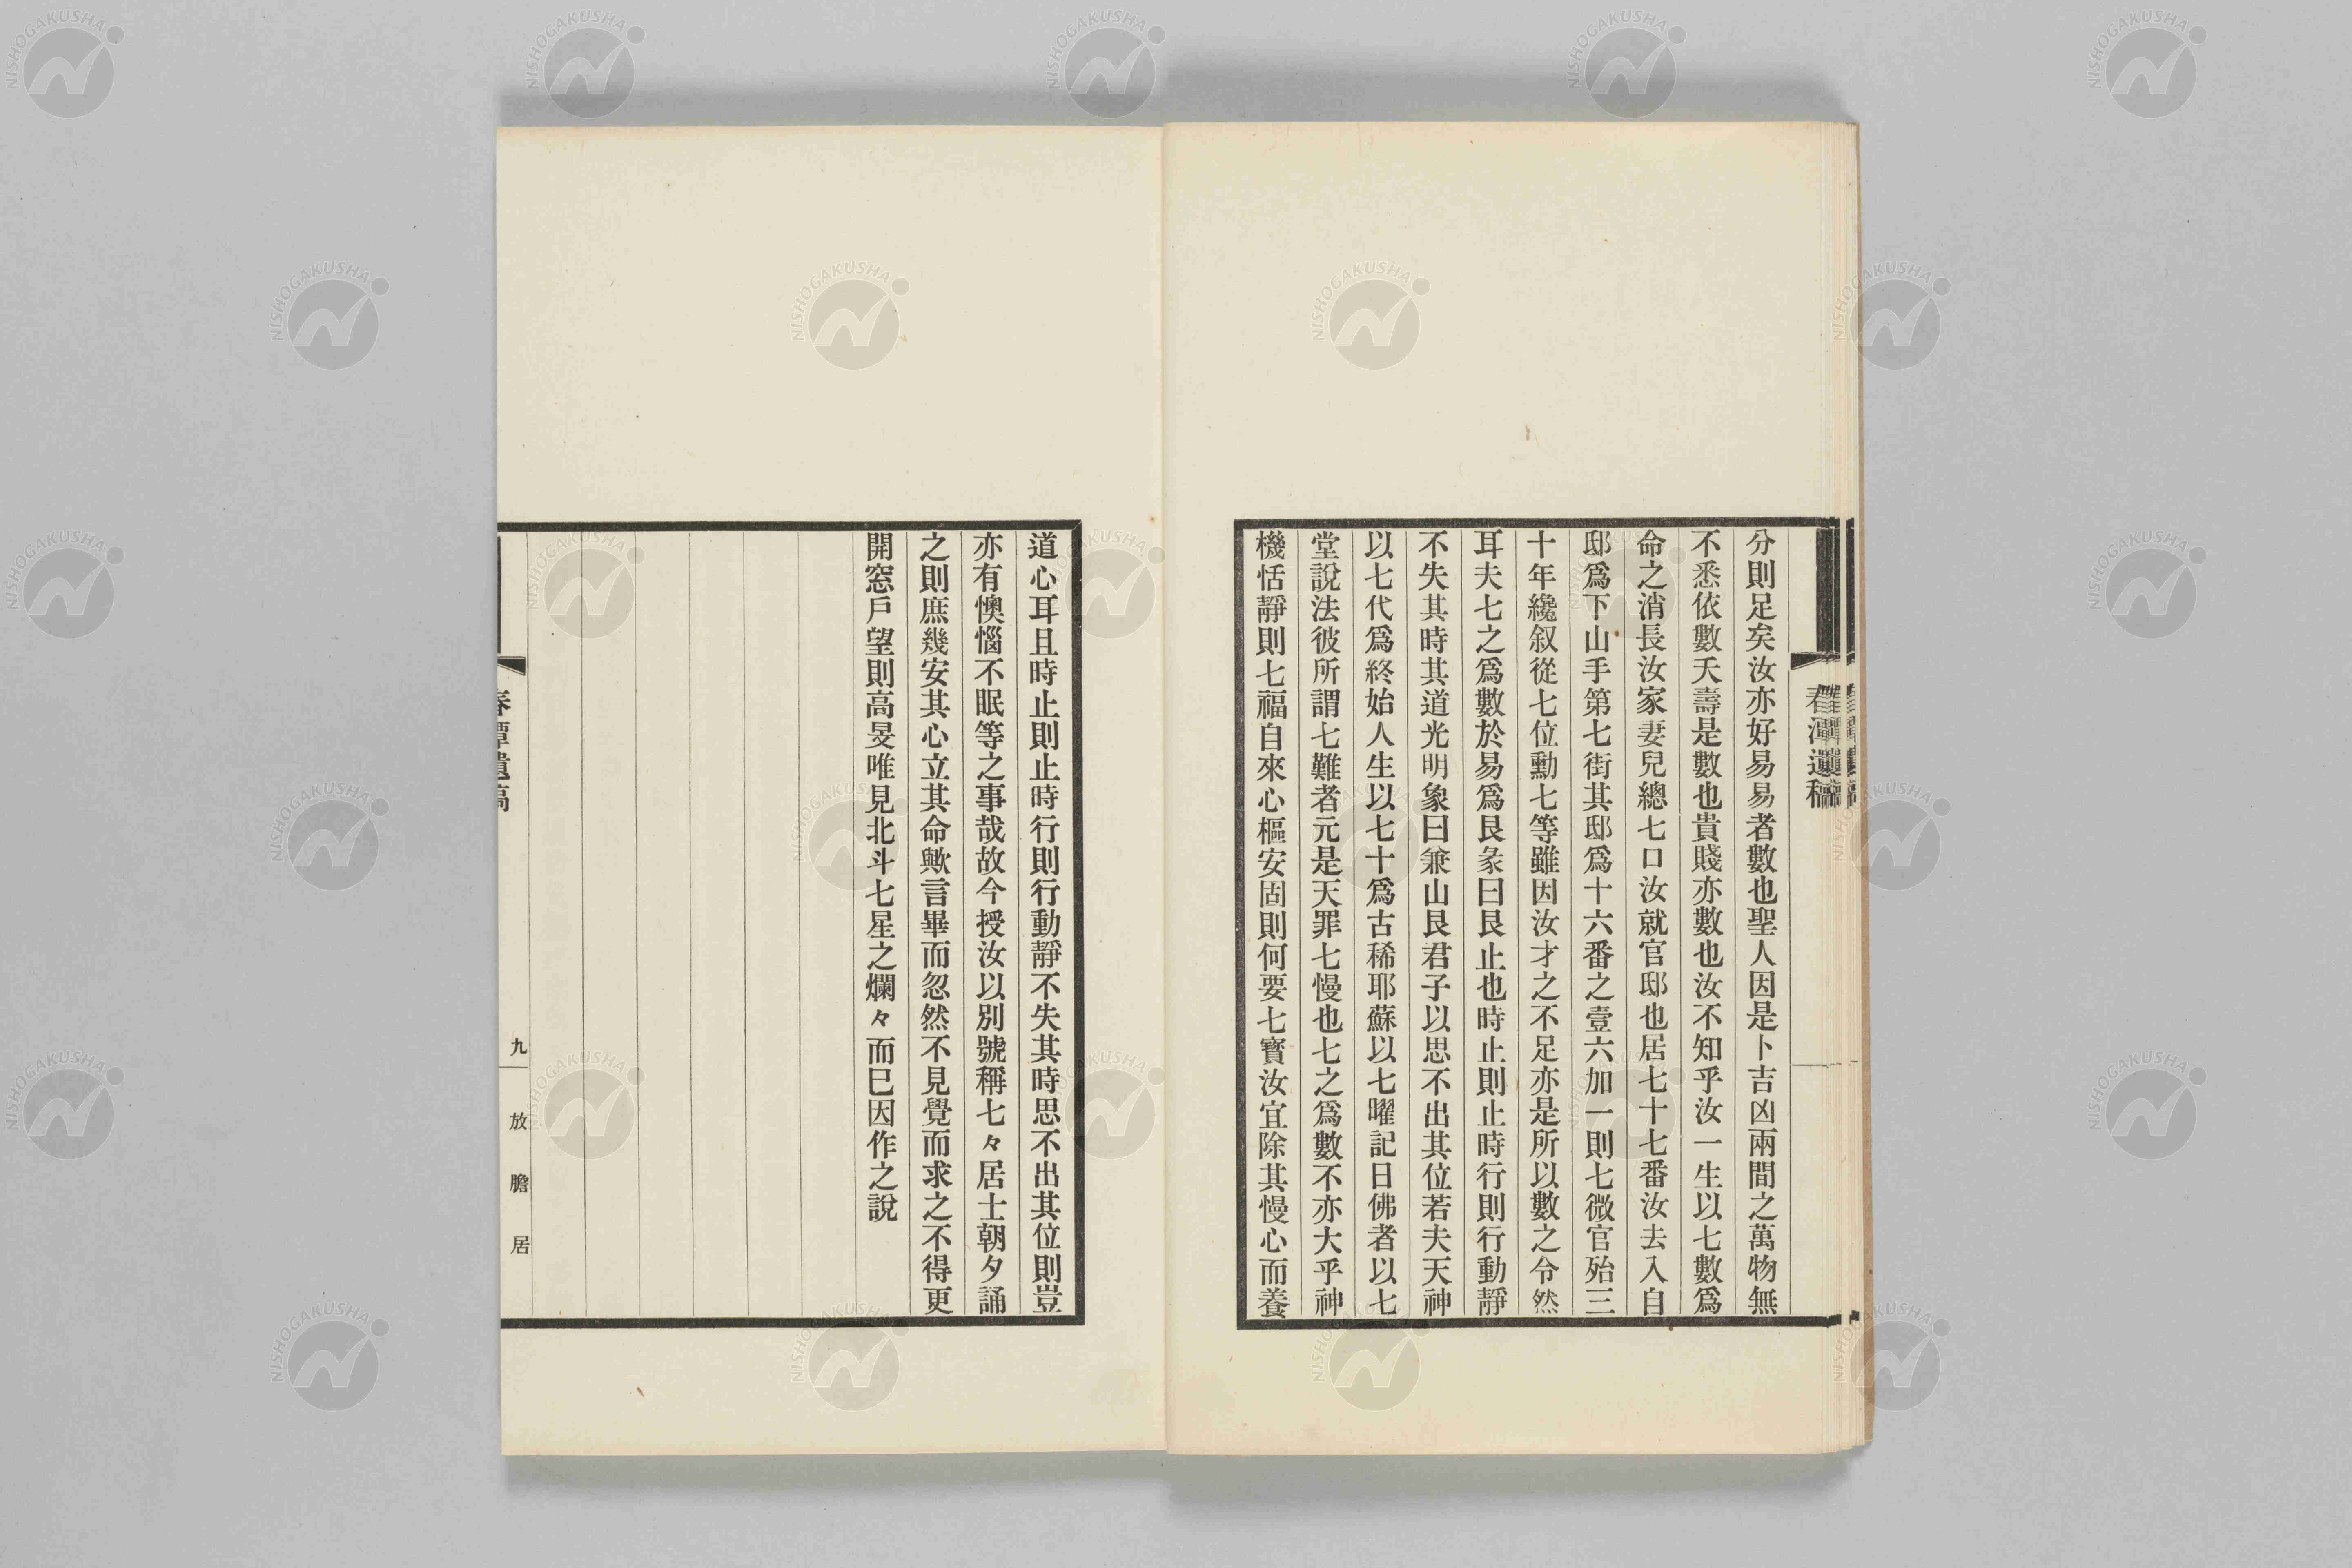 春潭遺稿
分則足矣汝亦好易易者數也聖人因是卜吉凶兩間之萬物無
不悉依數夭壽是數也貴賤亦數也汝不知乎汝一生以七數爲
命之消長汝家妻兒總七口汝就官邸也居七十七番汝去入自
邸爲下山手第七街其邸爲十六番之壹六加一則七微官殆三
十年纔叙從七位勳七等雖因汝才之不足亦是所以數之令然
耳夫七之爲數於易爲艮彖曰艮止也時止則止時行則行動靜
不失其時其道光明象曰兼山艮君子以思不出其位若夫天神
以七代爲終始人生以七十爲古稀耶蘇以七曜記日佛者以七
堂說法彼所謂七難者元是天罪七慢也七之爲數不亦大乎神
機恬靜則七福自來心樞安固則何要七寶汝宜除其慢心而養
道心耳且時止則止時行則行動靜不失其時思不出其位則豈
亦有懊惱不眠等之事哉故今授汝以別號稱七々居士朝夕誦
之則庶幾安其心立其命歟言畢而忽然不見覺而求之不得更
開窓戶望則高旻唯見北斗七星之爛々而已因作之說
春潭遺稿
九
放膽居
NISHOGAKUSHA